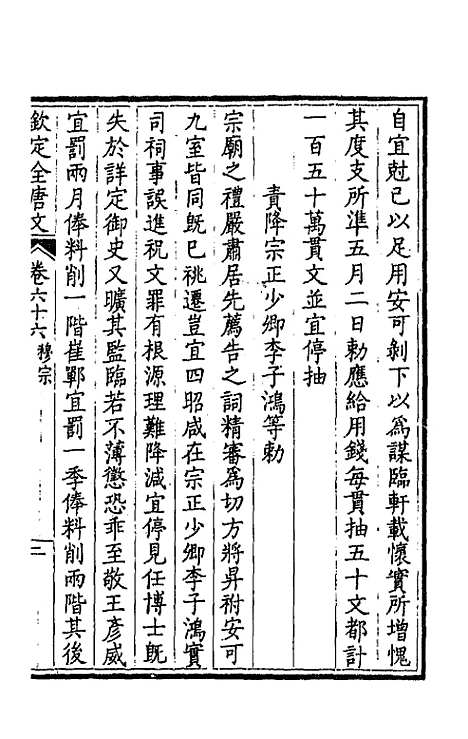 自宜尅己以足用安可剝下以爲謀臨軒載懷實所增愧
其度支所準五月二日勅應給用錢每貫抽五十文都計
一百五十萬貫文並宜停抽
責降宗正少卿李子鴻等勅
宗廟之禮嚴肅居先薦告之詞精審爲切方將昇祔安可
九室皆同既巳祧遷豈宜四昭咸在宗正少卿李子鴻實
司祠事誤進祝文罪有根源理難降減宜停見任博士既
失於詳定御史又曠其監臨若不薄懲恐乖至敬王彥威
宜罰兩月俸料削一階崔鄲宜罰一季俸料削兩階其後
欽定全唐文 卷六十六 穆宗 二